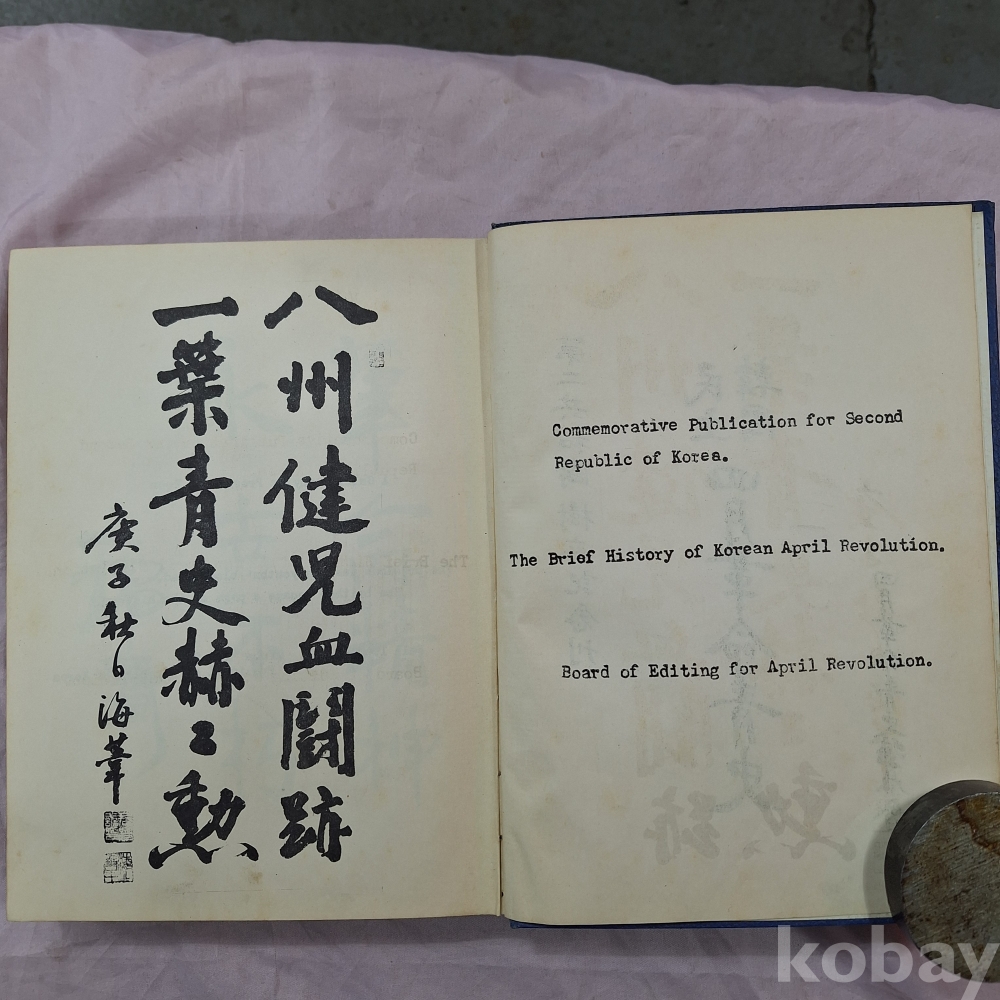 八州健児血鬪跡
一葉青史赫〻勳
庚子秋日海葦
Commemorative Publication for Second
Republic of Korea.
The Brief History of Korean April Revolution.
Board of Editing for April Revolution.
kobay